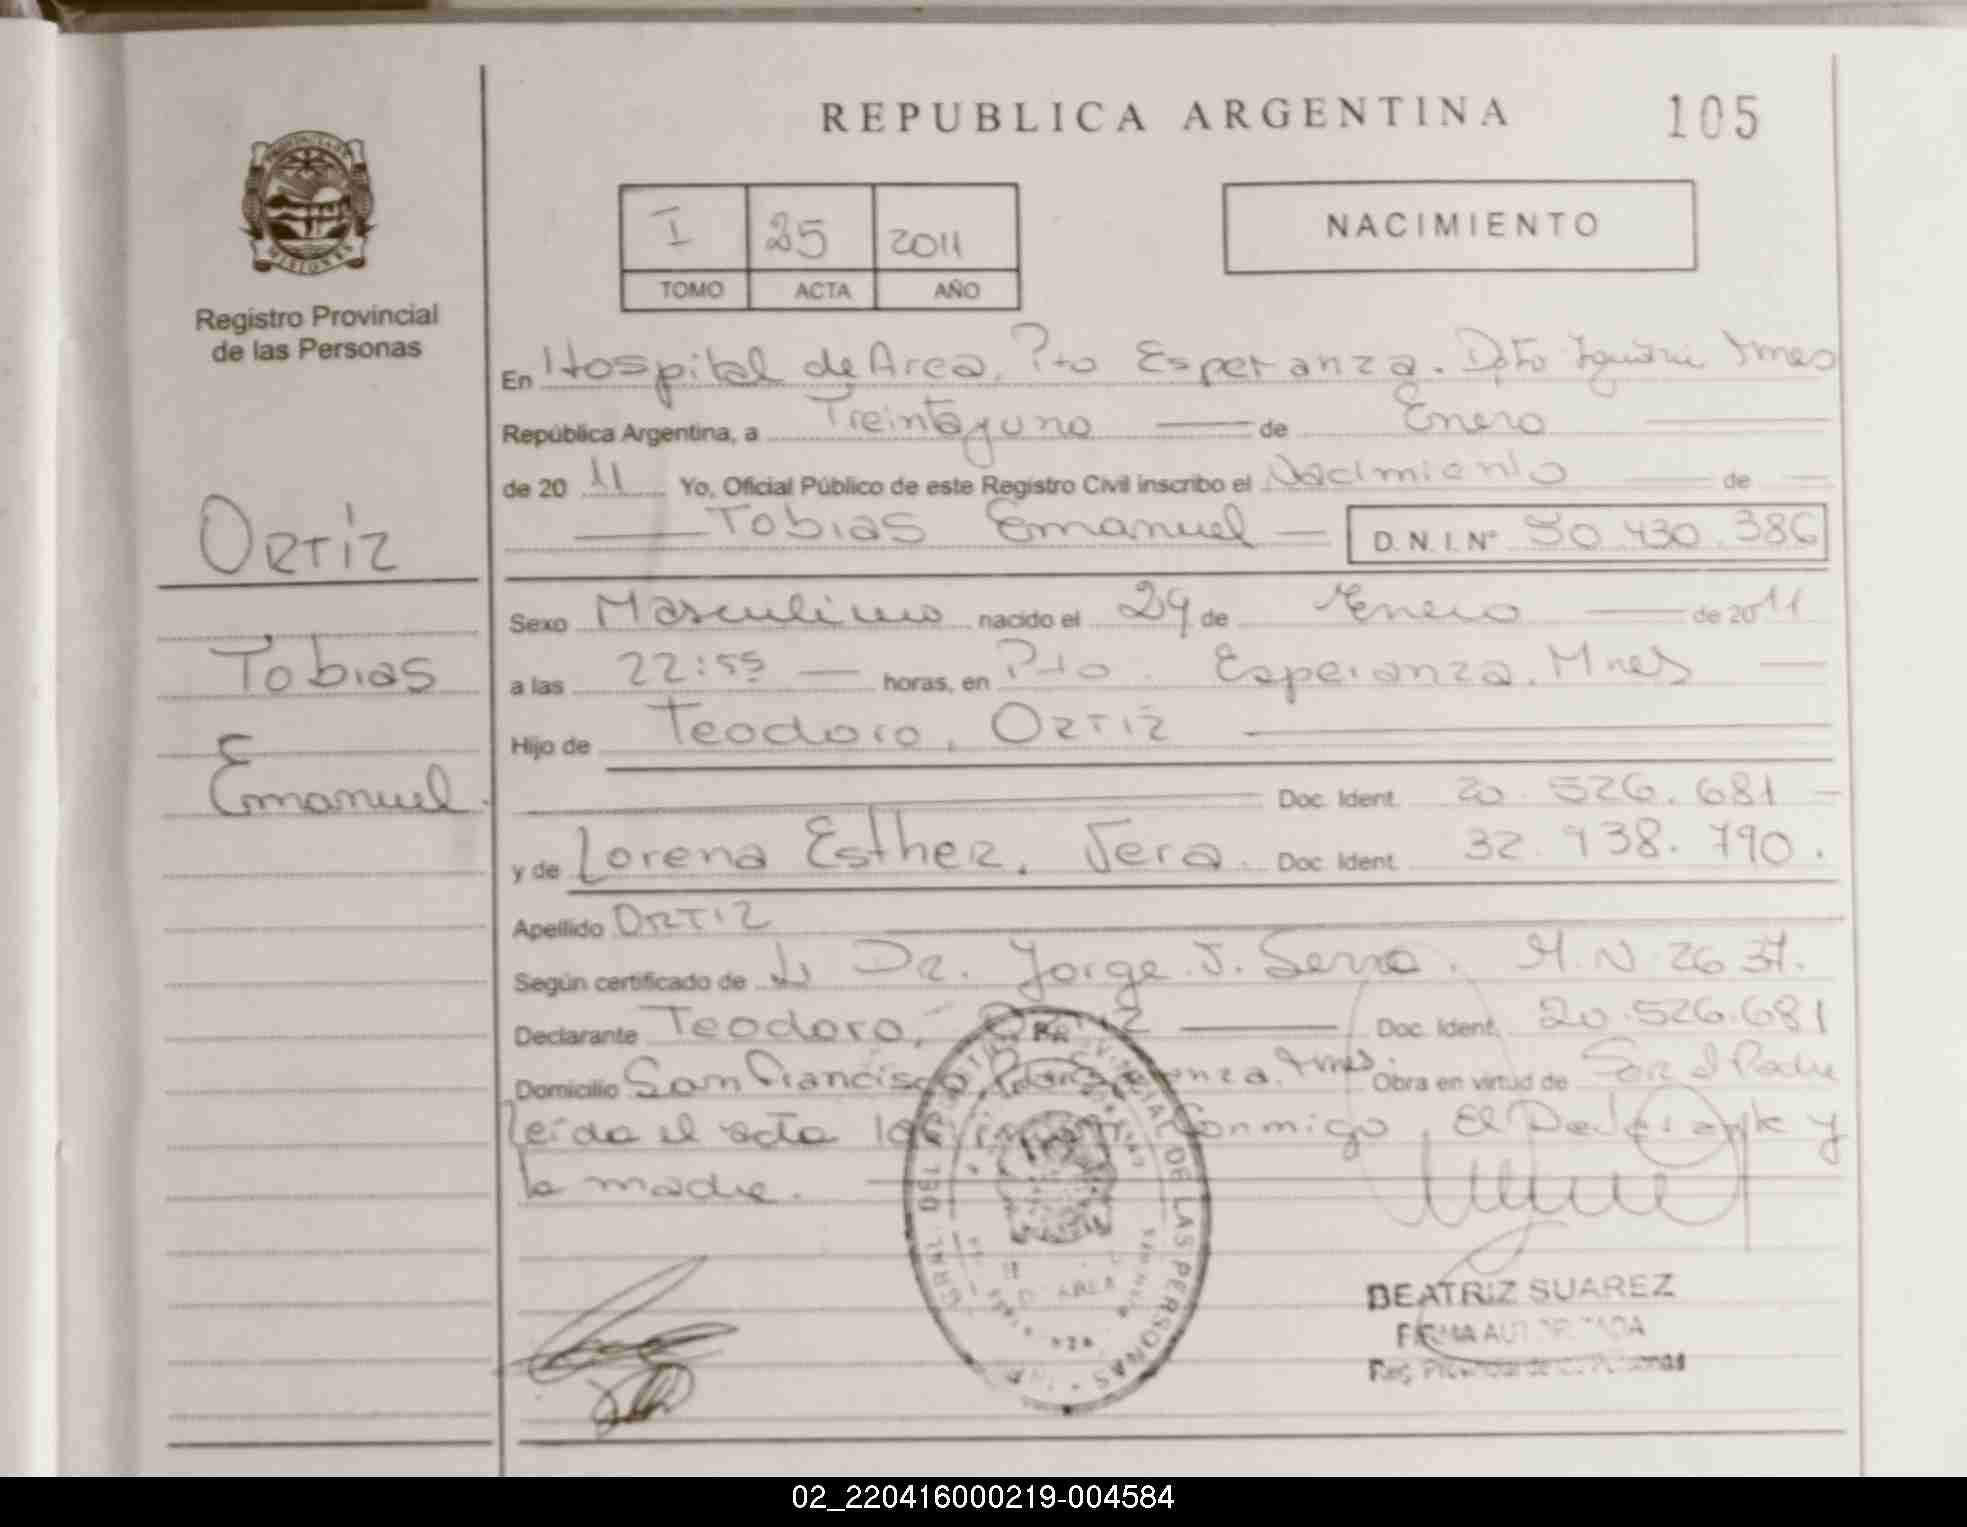 REPUBLICA ARGENTINA
105
PROVINCIA DE
MISIONES
Registro Provincial
de las Personas
I 25 2011
TOMO ACTA AÑO
NACIMIENTO
En Hospital de Area, Pto Esperanza. Dpto Iguazu Mnes
República Argentina, a Treintayuno de Enero
de 20 11 Yo, Oficial Público de este Registro Civil inscribo el Nacimiento de
Tobias Emanuel D.N.I.Nº 50.430.386
Ortiz
Tobias
Emanuel.
Sexo Masculino nacido el 29 de Enero de 2011
a las 22:55 horas, en Pto. Esperanza. Mnes
Hijo de Teodoro, Ortiz
Doc. Ident. 20.526.681
y de Lorena Esther, Vera. Doc. Ident. 32.938.790.
Apellido Ortiz
Según certificado de Dr. Jorge J. M.N. 2637.
Declarante Teodoro, Ortiz Doc. Ident. 20.526.681
Domicilio San Francisco, Mnes. Obra en virtud de Ser el Padre
Leída el acta conmigo, El Declarante y
la madre.
PROVINCIAL DE LAS PERSONAS
BEATRIZ SUAREZ
FIRMA AUTORIZADA
Reg. Provincial de las Personas
02_220416000219-004584